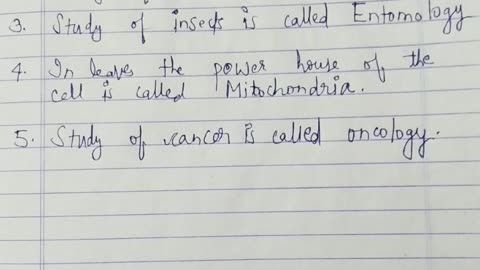 3. Study of insects is called Entomology
4. In leaves the power house of the
cell is called Mitochondria.
5. Study of cancer is called oncology.